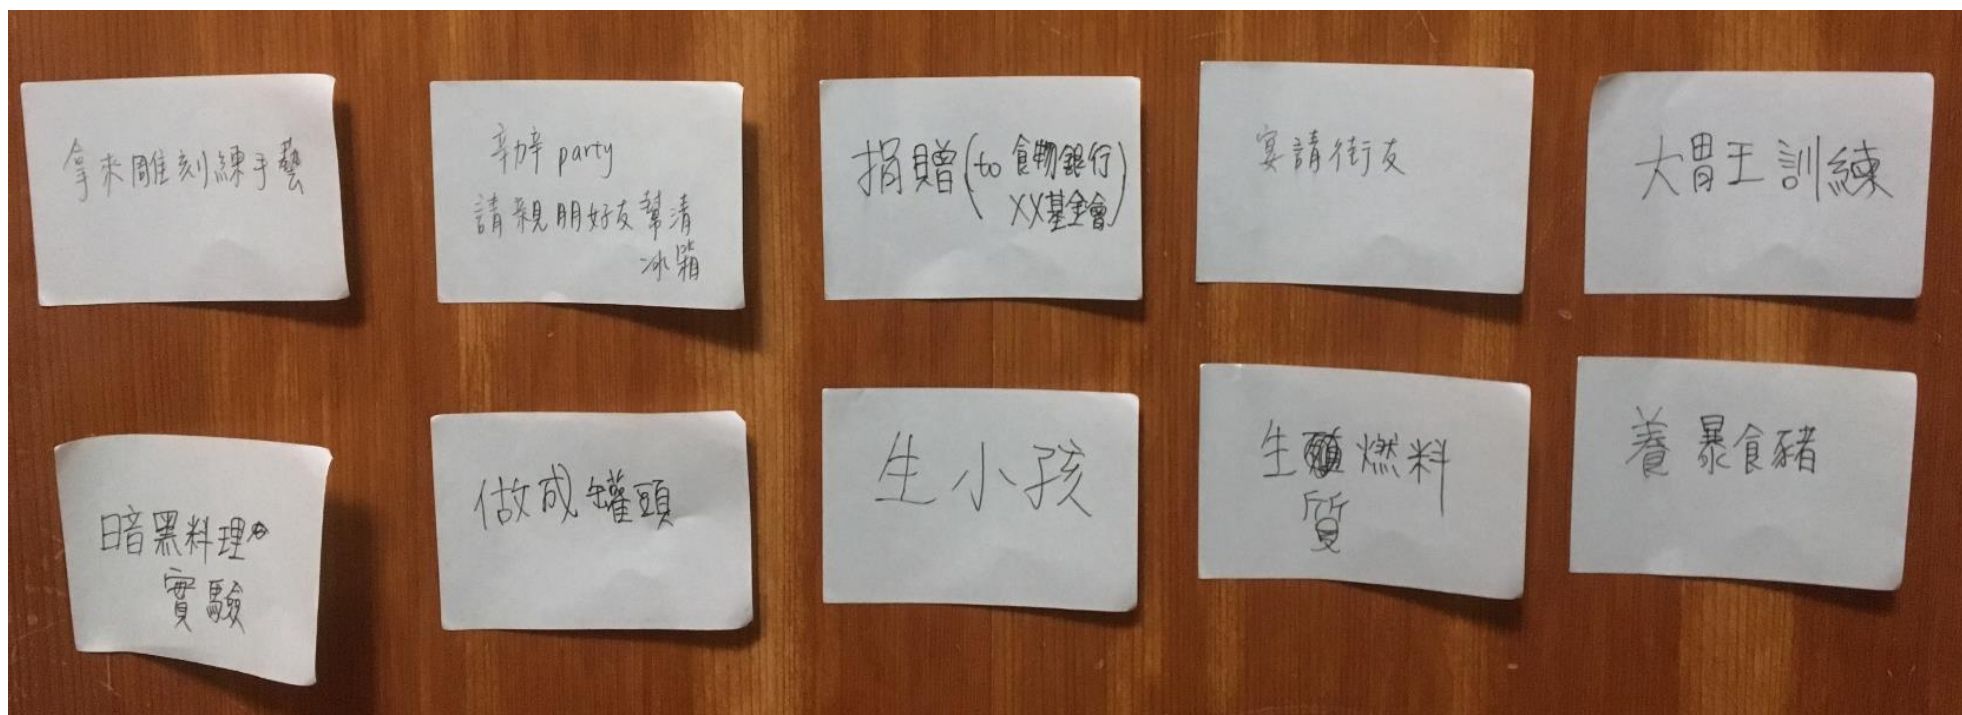 拿來雕刻練手藝
辦party
請親朋好友幫清
冰箱
捐贈(to 食物銀行
XX基金會)
宴請街友
大胃王訓練
暗黑料理
實驗
做成罐頭
生小孩
生燃料
質
養暴食豬